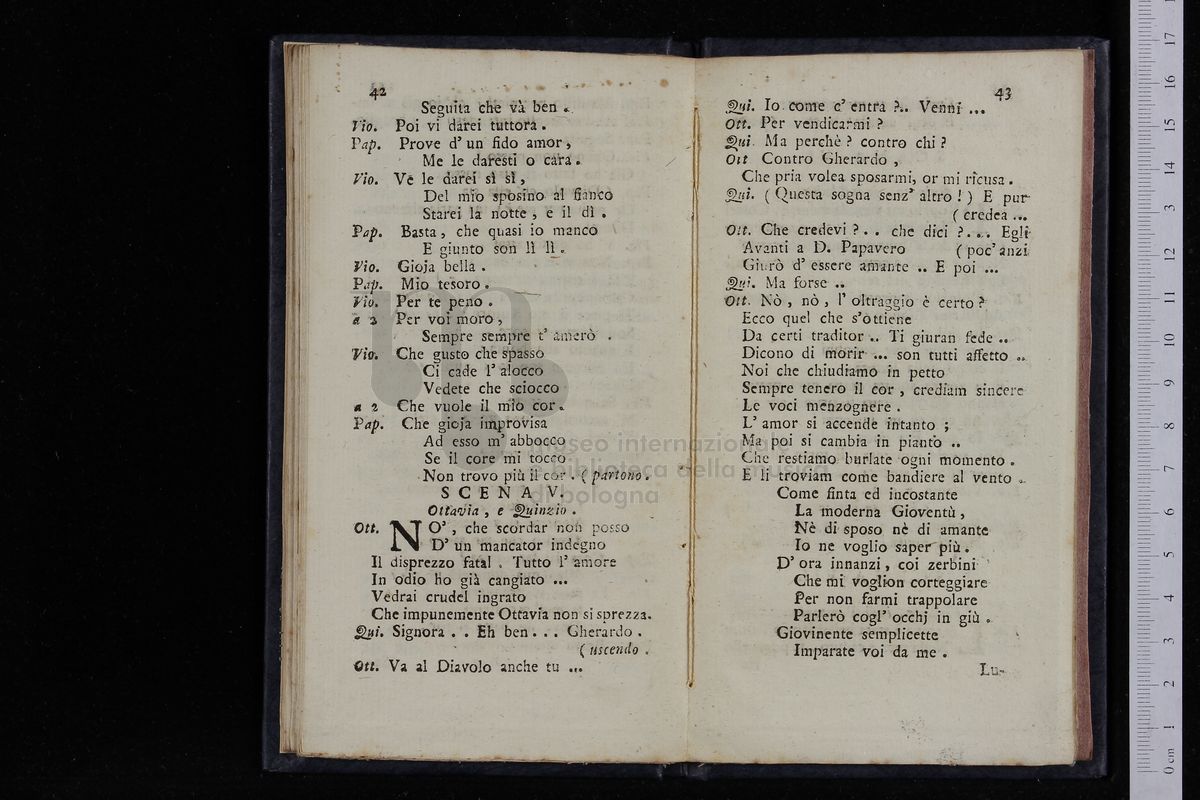 42
Seguita che và ben .
Vio. Poi vi darei tuttora .
Pap. Prove d' un fido amor ,
Me le daresti o cara .
Vio. Ve le darei sì sì ,
Del mio sposino al fianco
Starei la notte , e il dì .
Pap. Basta , che quasi io manco
E giunto son lì lì .
Vio. Gioja bella .
Pap. Mio tesoro .
Vio. Per te peno .
a 2 Per voi moro ,
Sempre sempre t' amerò .
Vio. Che gusto che spasso
Ci cade l' alocco
Vedete che sciocco
a 2 Che vuole il mio cor .
Pap. Che gioja improvisa
Ad esso m' abbocco
Se il core mi tocco
Non trovo più il cor . ( partono .
SCENA V.
Ottavia , e Quinzio .
Ott. NO' , che scordar non posso
D' un mancator indegno
Il disprezzo fatal . Tutto l' amore
In odio ho già cangiato ...
Vedrai crudel ingrato
Che impunemente Ottavia non si sprezza.
Qui. Signora . . Eh ben . . . Gherardo .
( uscendo .
Ott. Va al Diavolo anche tu ...
43
Qui. Io come c' entra ?.. Venni ...
Ott. Per vendicarmi ?
Qui. Ma perchè ? contro chi ?
Ott Contro Gherardo ,
Che pria volea sposarmi, or mi ricusa .
Qui. ( Questa sogna senz' altro ! ) E pur
( credea ...
Ott. Che credevi ? . . che dici ? . . . Egli
Avanti a D. Papavero ( poc' anzi
Giurò d' essere amante .. E poi ...
Qui. Ma forse ..
Ott. Nò , nò , l' oltraggio è certo ?
Ecco quel che s'ottiene
Da certi traditor .. Ti giuran fede ..
Dicono di morir ... son tutti affetto ..
Noi che chiudiamo in petto
Sempre tenero il cor , crediam sincere
Le voci menzognere .
L' amor si accende intanto ;
Ma poi si cambia in pianto ..
Che restiamo burlate ogni momento .
E li troviam come bandiere al vento .
Come finta ed incostante
La moderna Gioventù ,
Nè di sposo nè di amante
Io ne voglio saper più .
D' ora innanzi , coi zerbini
Che mi voglion corteggiare
Per non farmi trappolare
Parlerò cogl' occhj in giù .
Giovinente semplicette
Imparate voi da me .
Lu-
museo internazionale
e biblioteca della musica
di bologna
0 cm 1 2 3 4 5 6 7 8 9 10 11 12 3 14 15 16 17